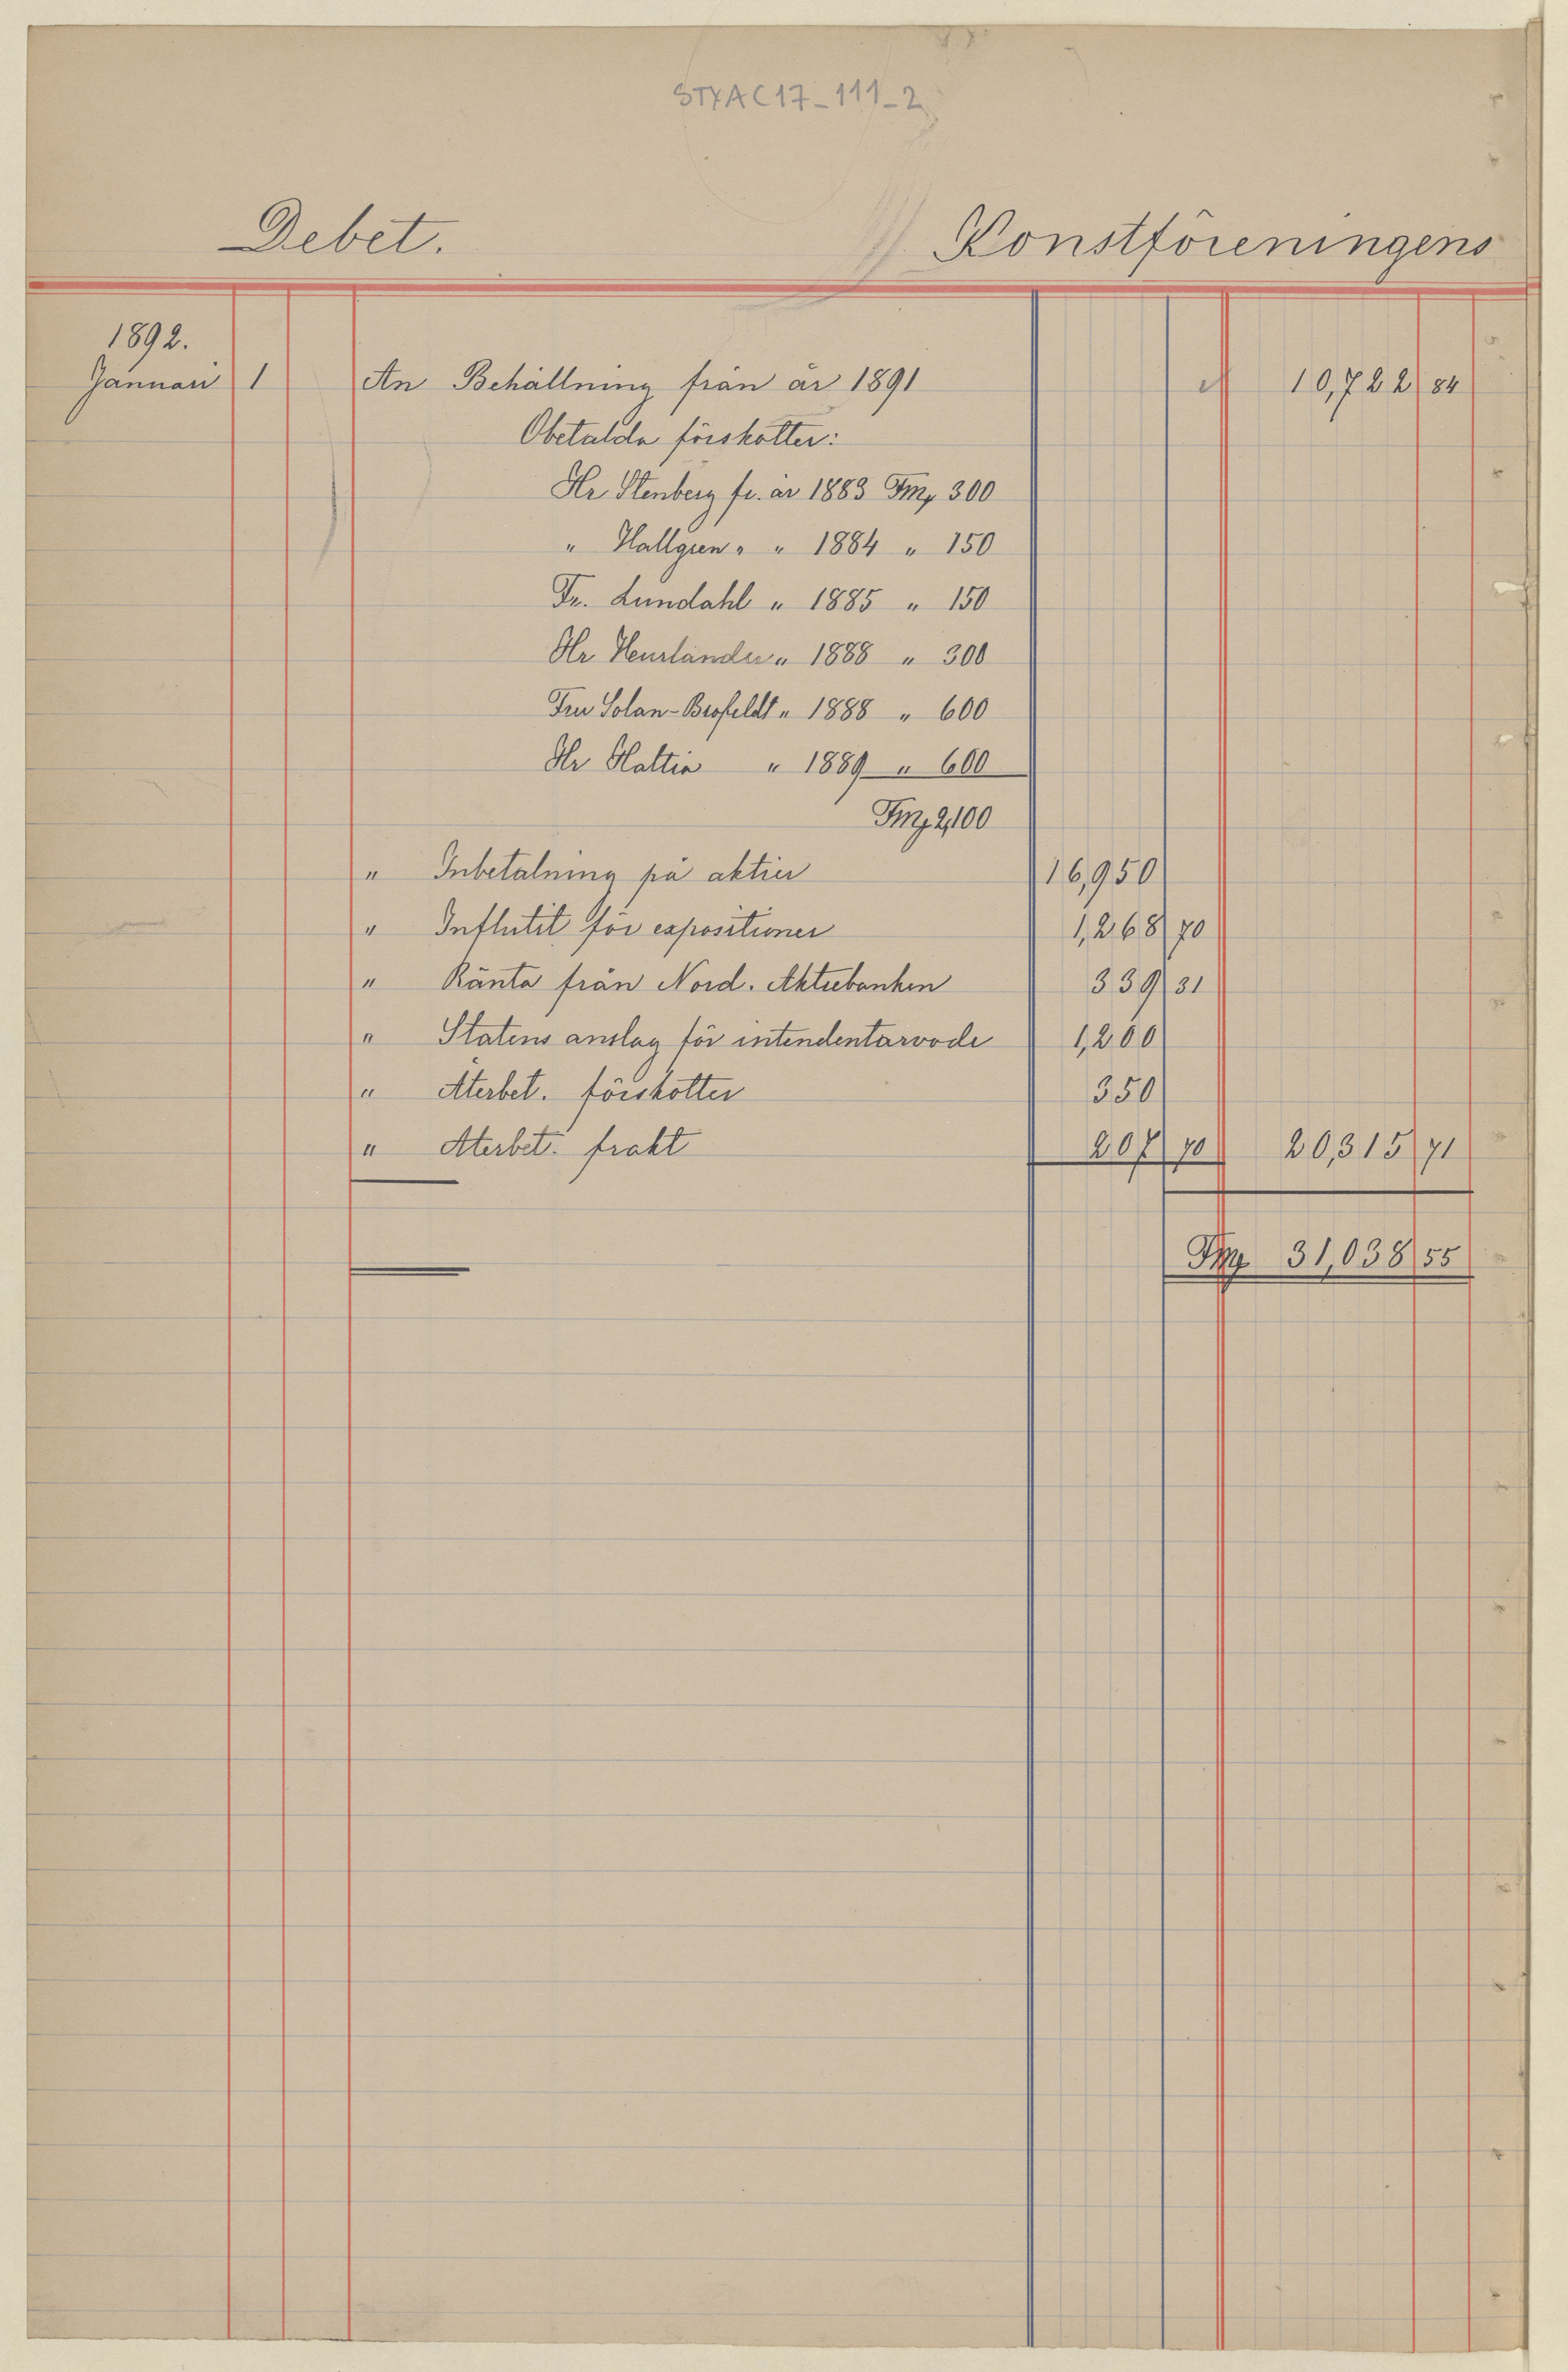 STYAC17-111-2
Debet. Konstföreningens
1892.
Januari 1 An Behållning från år 1891 10,722 84
Obetalda förskotter:
Hr Stenberg fr. år 1883 Fmk 300
" Hallgren " " 1884 " 150
Fr. Lundahl " 1885 " 150
Hr Heurlander " 1888 " 300
Fru Solan-Brofeldt " 1888 " 600
Hr Haltia " 1889 " 600
Fmk 2,100
" Inbetalning på aktier 16,950
" Influtit för expositioner 1,268 70
" Ränta från Nord. Aktiebanken 339 31
" Statens anslag för intendentarvode 1,200
" Återbet. förskotter 350
" Återbet. frakt 207 70 20,315 71
Fmk 31,038 55